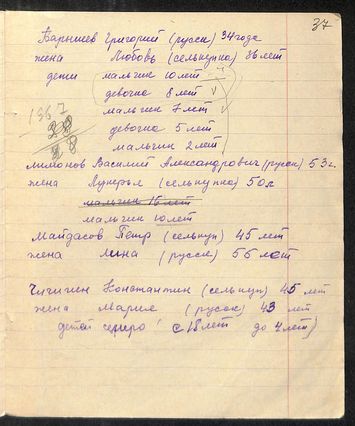 37
Барышев Григорий (русск) 34 года
жена Любовь (селькупка) 36 лет
дети мальчик 10 лет
девочка 8 лет v
мальчик 7 лет v
девочка 5 лет
мальчик 2 лет
1967
28
28
Лимонов Василий Александрович (русск) 53 г.
жена Лукерья (селькупка) 50 л
мальчик 15 лет
мальчик 10 лет
Майдасов Петр (селькуп) 45 лет
жена Лина (русск) 55 лет
Чичигин Константин (селькуп) 45 лет
жена Мария (русск) 43 лет
детей семеро! с 18 лет до 4 лет)